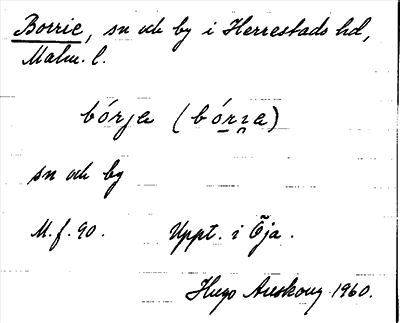 Borrie, sn och by i Herrestads hd,
Malm. l.
bórja (bórɪa)
sn och by
M.f. 90. Uppt. i Öja.
Hugo Areskoug 1960.